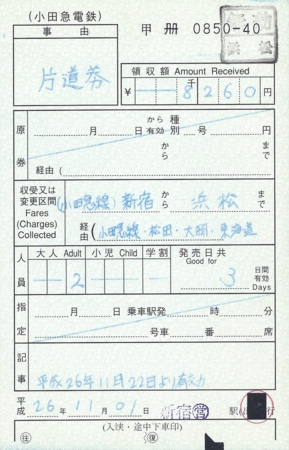 (小田急電鉄)
事由 甲 冊 0850-40
浜松
片道券
領収額 Amount Received
千
¥ 8260 円
原券
から 種
月 日 有効 別 号 円
から まで
経由( )
収受又は 変更区間 Fares (Charges) Collected
(小田急線) 新宿 から 浜松 まで
経由(小田急線・松田・大岡・東海道
人員
大人 Adult 小児 Child 学割
2
発売日共 Good for
3 日間有効 Days
指定
月 日 乗車駅発 時 分
号車 番 席
記事
平成26年11月22日より有効
平成 26年 11月 01日 新宿 営 駅( 行
(入挟・途中下車印)